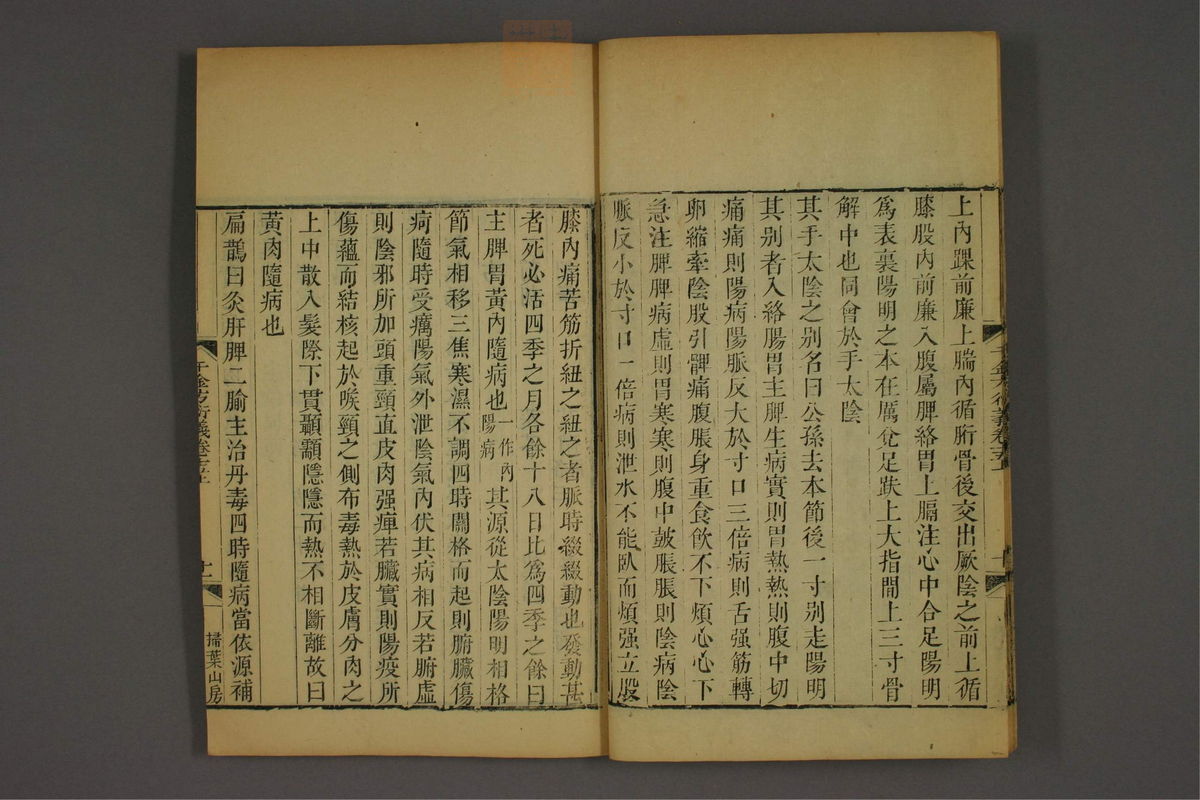 上內踝前廉上腨內循胻骨後交出厥陰之前上循
膝股內前廉入腹屬脾絡胃上膈注心中合足陽明
爲表裏陽明之本在厲兌足趺上大指間上三寸骨
解中也同會於手太陰
其手太陰之别名曰公孫去本節後一寸别走陽明
其别者入絡腸胃主脾生病實則胃熱熱則腹中切
痛痛則陽病陽脈反大於寸口三倍病則舌强筋轉
卵縮牽陰股引髀痛腹脹身重食飮不下煩心心下
急注脾脾病虛則胃寒寒則腹中鼓脹脹則陰病陰
脈反小於寸口一倍病則泄水不能臥而煩强立股
膝內痛苦筋折紐之紐之者脈時綴綴動也發動甚
者死必活四季之月各餘十八日比爲四季之餘日
主脾胃黃內隨病也一作內陽病其源從太陰陽明相格
節氣相移三焦寒濕不調四時關格而起則腑臟傷
疴隨時受癘陽氣外泄陰氣內伏其病相反若腑虛
則陰邪所加頭重頸直皮肉强痺若臟實則陽疫所
傷蘊而結核起於喉頸之側布毒熱於皮膚分肉之
上中散入髮際下貫顳顬隱隱而熱不相斷離故曰
黃肉隨病也
扁鵲曰灸肝脾二腧主治丹毒四時隨病當依源補
千金方衍義卷十五上
十一
掃葉山房